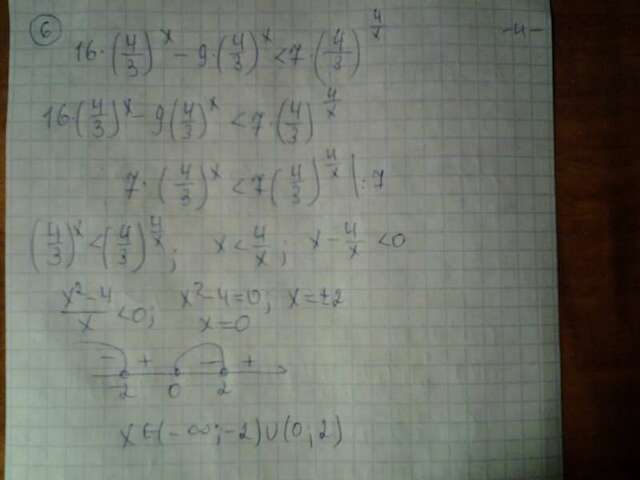 ⑥ 16·(4/3)^x - 9·(4/3)^x < 7·(4/3)^(4/x) -4-
16·(4/3)^x - 9(4/3)^x < 7·(4/3)^(4/x)
7·(4/3)^x < 7(4/3)^(4/x) | :7
(4/3)^x < (4/3)^(4/x); x < 4/x; x - 4/x < 0
(x²-4)/x < 0; x²-4=0; x=±2
x=0
- + - +
-2 0 2
x∈(-∞;-2)∪(0;2)